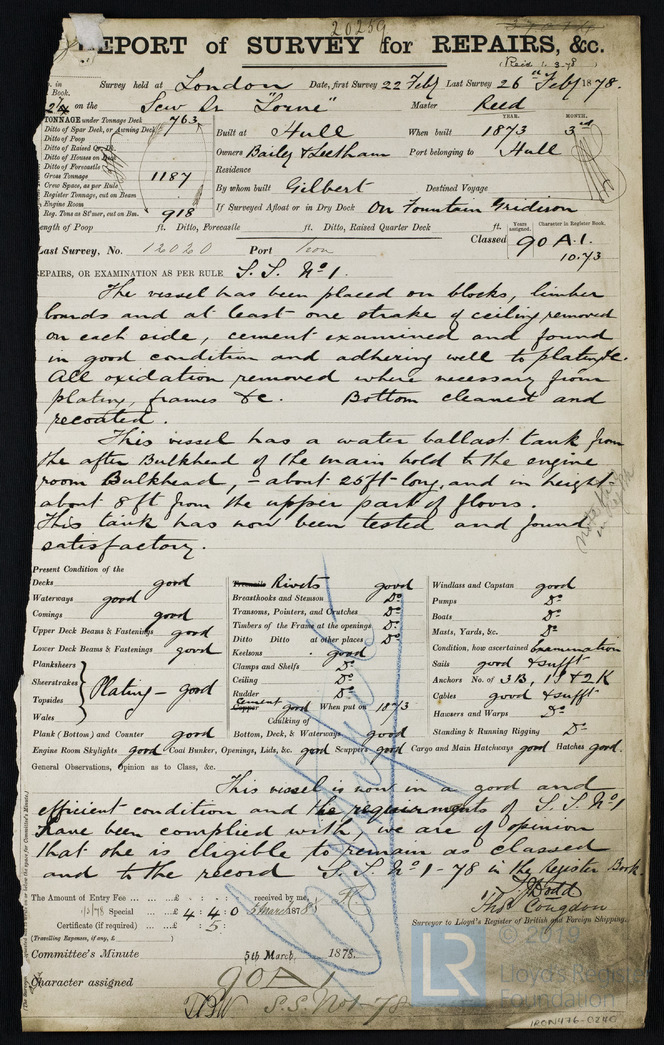 20259
REPORT of SURVEY for REPAIRS, &c.
(Recd 1.3.78)
Survey held at London Date, first Survey 22 Feby Last Survey 26th Feby 1878.
on the Scw Sr "Lorne" Master Reed
TONNAGE under Tonnage Deck 763
Ditto of Spar Deck, or Awning Deck
Ditto of Poop
Ditto of Raised Qr. Dk.
Ditto of Houses on Dk.
Ditto of Forecastle
Gross Tonnage 1187
Crew Space, as per Rule
Register Tonnage, cut on Beam
Engine Room
Reg. Tons as St'mer, cut on Bm. 918
YEAR. MONTH.
Built at Hull When built 1873 3rd
Owners Bailey & Leetham Port belonging to Hull
Residence
By whom built Gilbert Destined Voyage
If Surveyed Afloat or in Dry Dock On Fountain Gridiron
Length of Poop ft. Ditto, Forecastle ft. Ditto, Raised Quarter Deck ft.
Years assigned. Character in Register Book.
Last Survey, No. 12020 Port Iron Classed 90 A.1.
10.73
REPAIRS, OR EXAMINATION AS PER RULE S. S. No 1.
The vessel has been placed on blocks, limber
boards and at least one strake of ceiling removed
on each side, cement examined and found
in good condition and adhering well to plating &c.
All oxidation removed where necessary from
plating, frames &c. Bottom cleaned and
recoated.
This vessel has a water ballast tank from
the after Bulkhead of the main hold to the engine
room Bulkhead, - about 25ft long, and in height
about 8ft from the upper part of floors.
This tank has now been tested and found
satisfactory.
Present Condition of the
Decks good
Waterways good
Comings good
Upper Deck Beams & Fastenings good
Lower Deck Beams & Fastenings good
Planksheers
Sheerstrakes
Topsides
Wales
Plating - good
Plank (Bottom) and Counter good
Treenails Rivets good
Breasthooks and Stemson Do
Transoms, Pointers, and Crutches Do
Timbers of the Frame at the openings Do
Ditto Ditto at other places Do
Keelsons good
Clamps and Shelfs Do
Ceiling Do
Rudder Do
Copper Cement good When put on 1873
Caulking of
Bottom, Deck, & Waterways good
Windlass and Capstan good
Pumps Do
Boats Do
Masts, Yards, &c. Do
Condition, how ascertained Examination
Sails good & sufft
Anchors No. of 3B, 1S & 2K
Cables good & sufft
Hawsers and Warps Do
Standing & Running Rigging Do
Engine Room Skylights good Coal Bunker, Openings, Lids, &c. good Scuppers good Cargo and Main Hatchways good Hatches good.
General Observations, Opinion as to Class, &c.
This vessel is now in a good and
efficient condition and the requirements of S. S. No 1
have been complied with, we are of opinion
that she is eligible to remain as classed
and to the record S. S. No 1-78 in the Register Book
The Amount of Entry Fee £ : : received by me,
1/3/78 Special £ 4 : 4 : 0 5 March 1878
Certificate (if required) £ : 5 :
(Travelling Expenses, if any, £ )
Dodd
Thos Congdon
Surveyor to Lloyd's Register of British and Foreign Shipping.
Committee's Minute 5th March, 1878.
Character assigned 90 A 1
S.S. No 1-78
LR
Lloyd's Register
Foundation
IRON476-0240